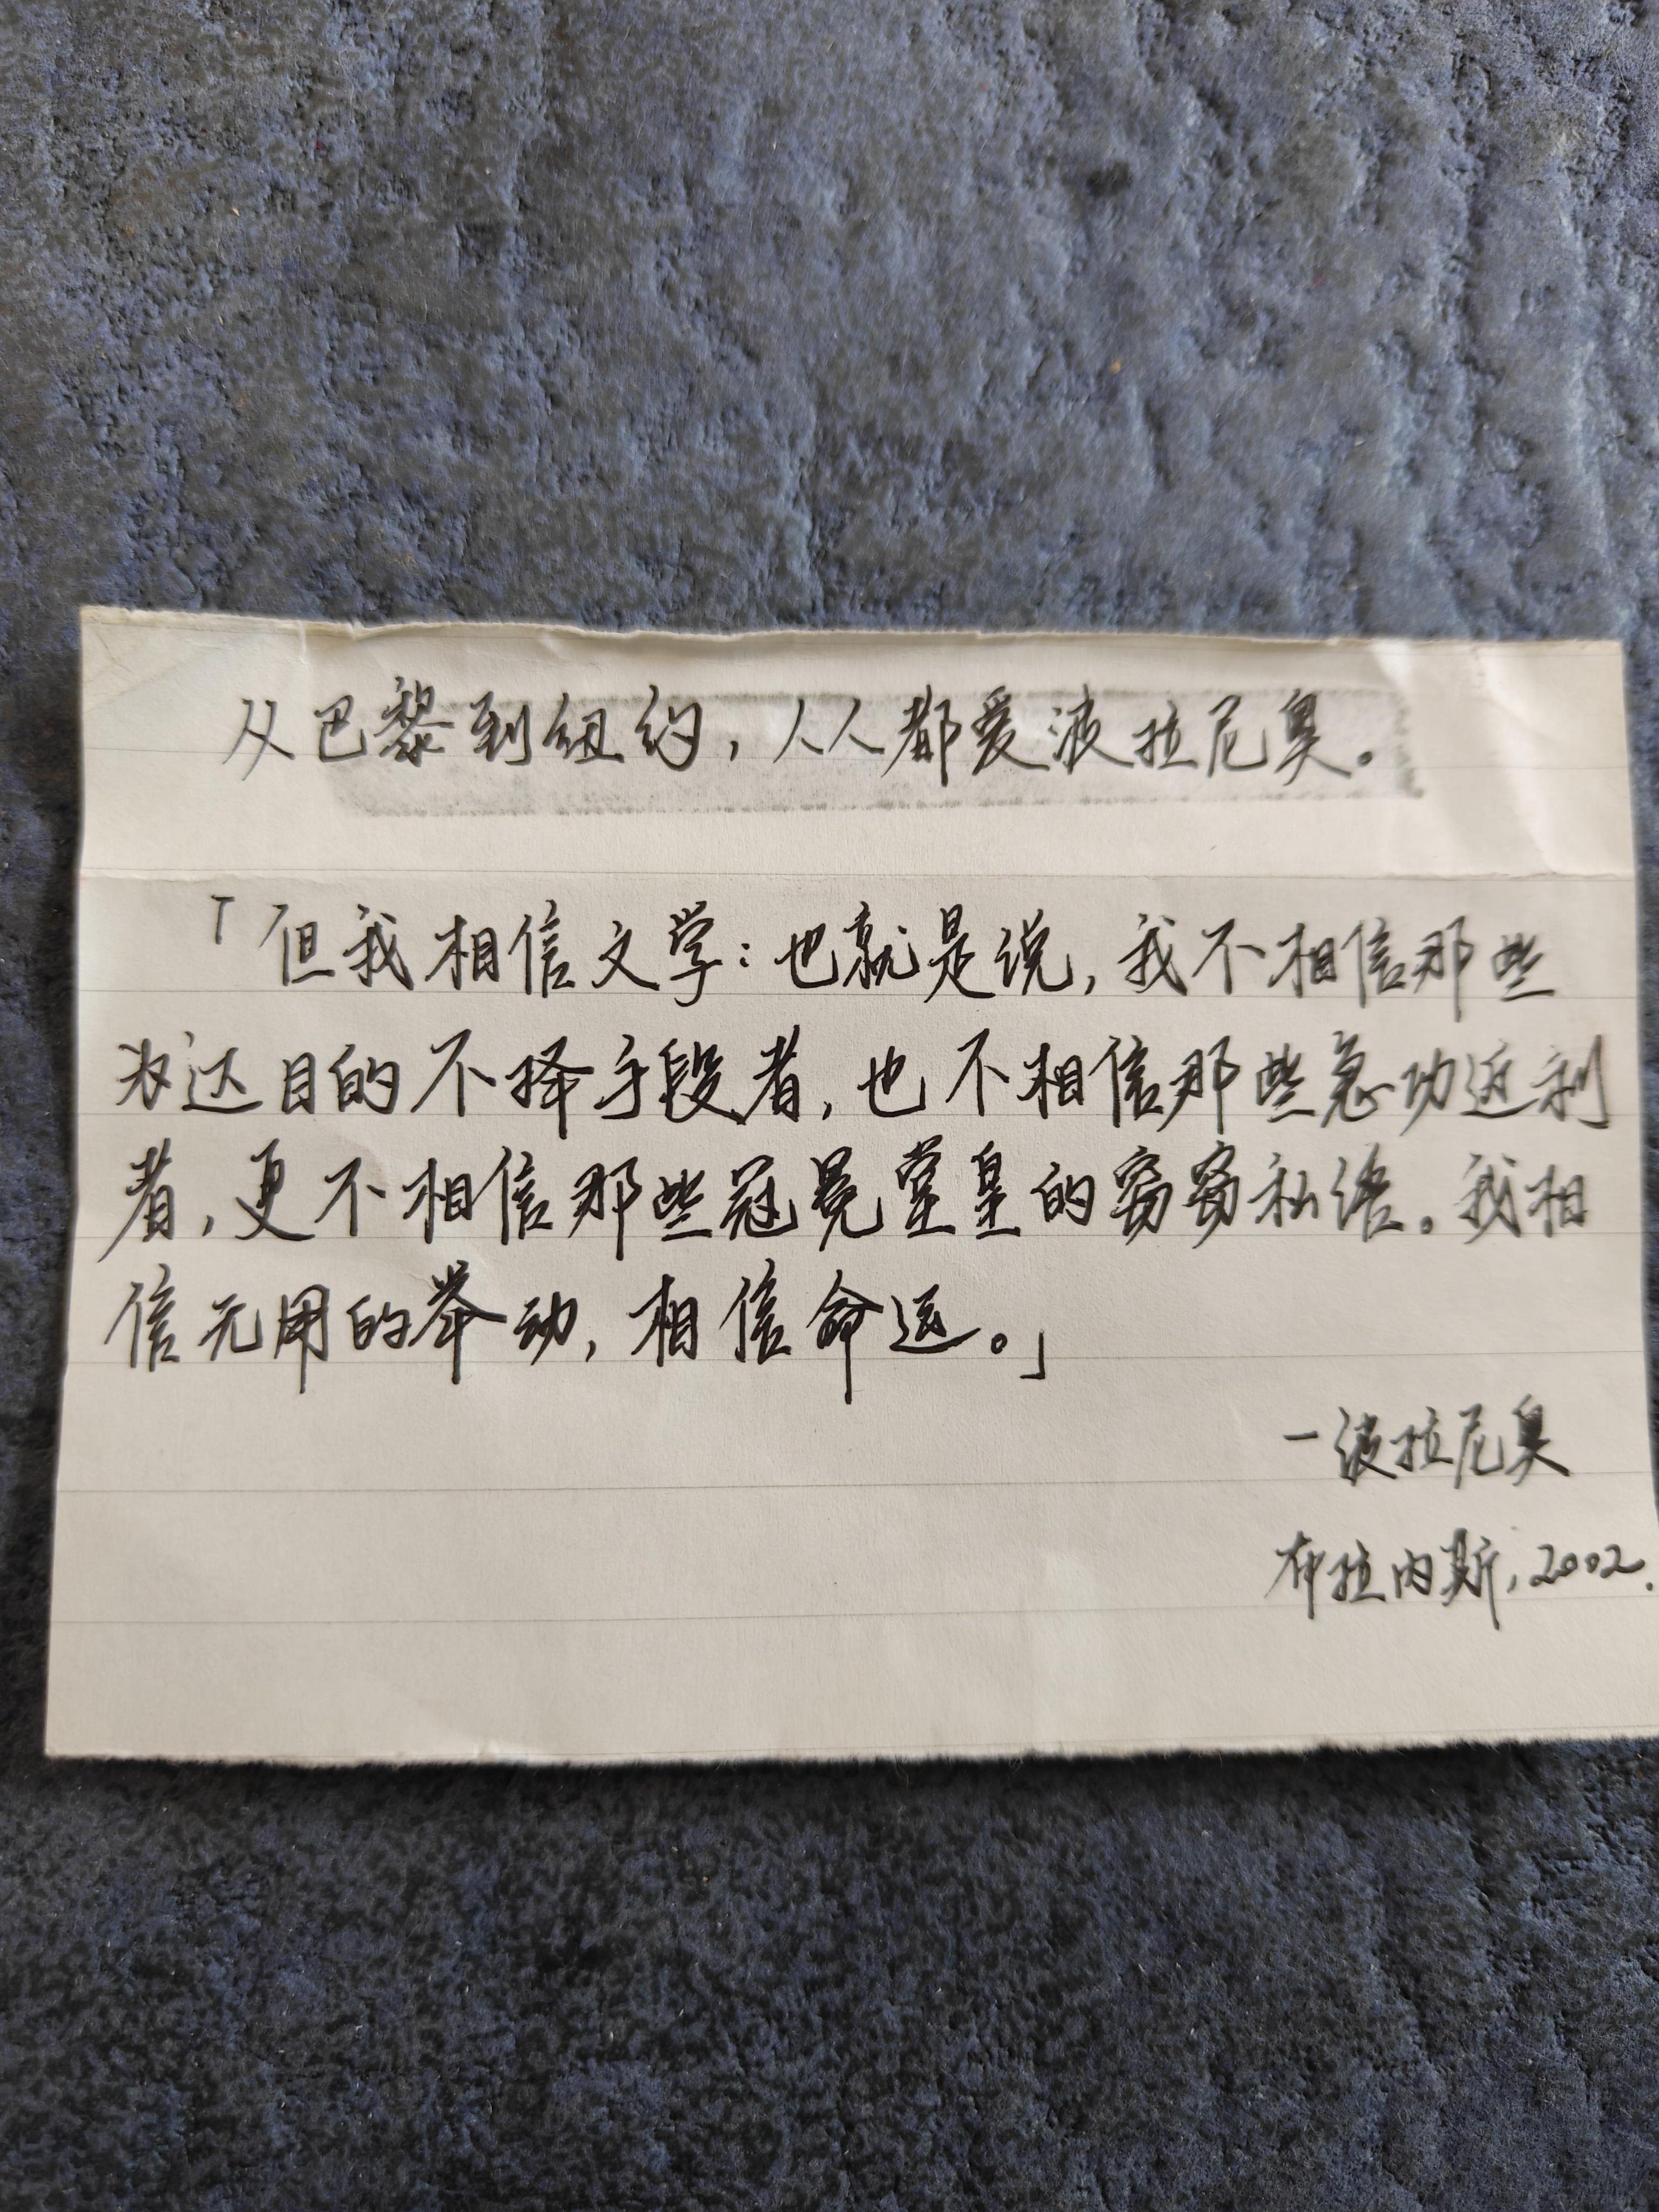 从巴黎到纽约，人人都爱波拉尼奥。
「但我相信文学：也就是说，我不相信那些
为达目的不择手段者，也不相信那些急功近利
者，更不相信那些冠冕堂皇的窃窃私语。我相
信无用的举动，相信命运。」
—波拉尼奥
布拉内斯，2002.